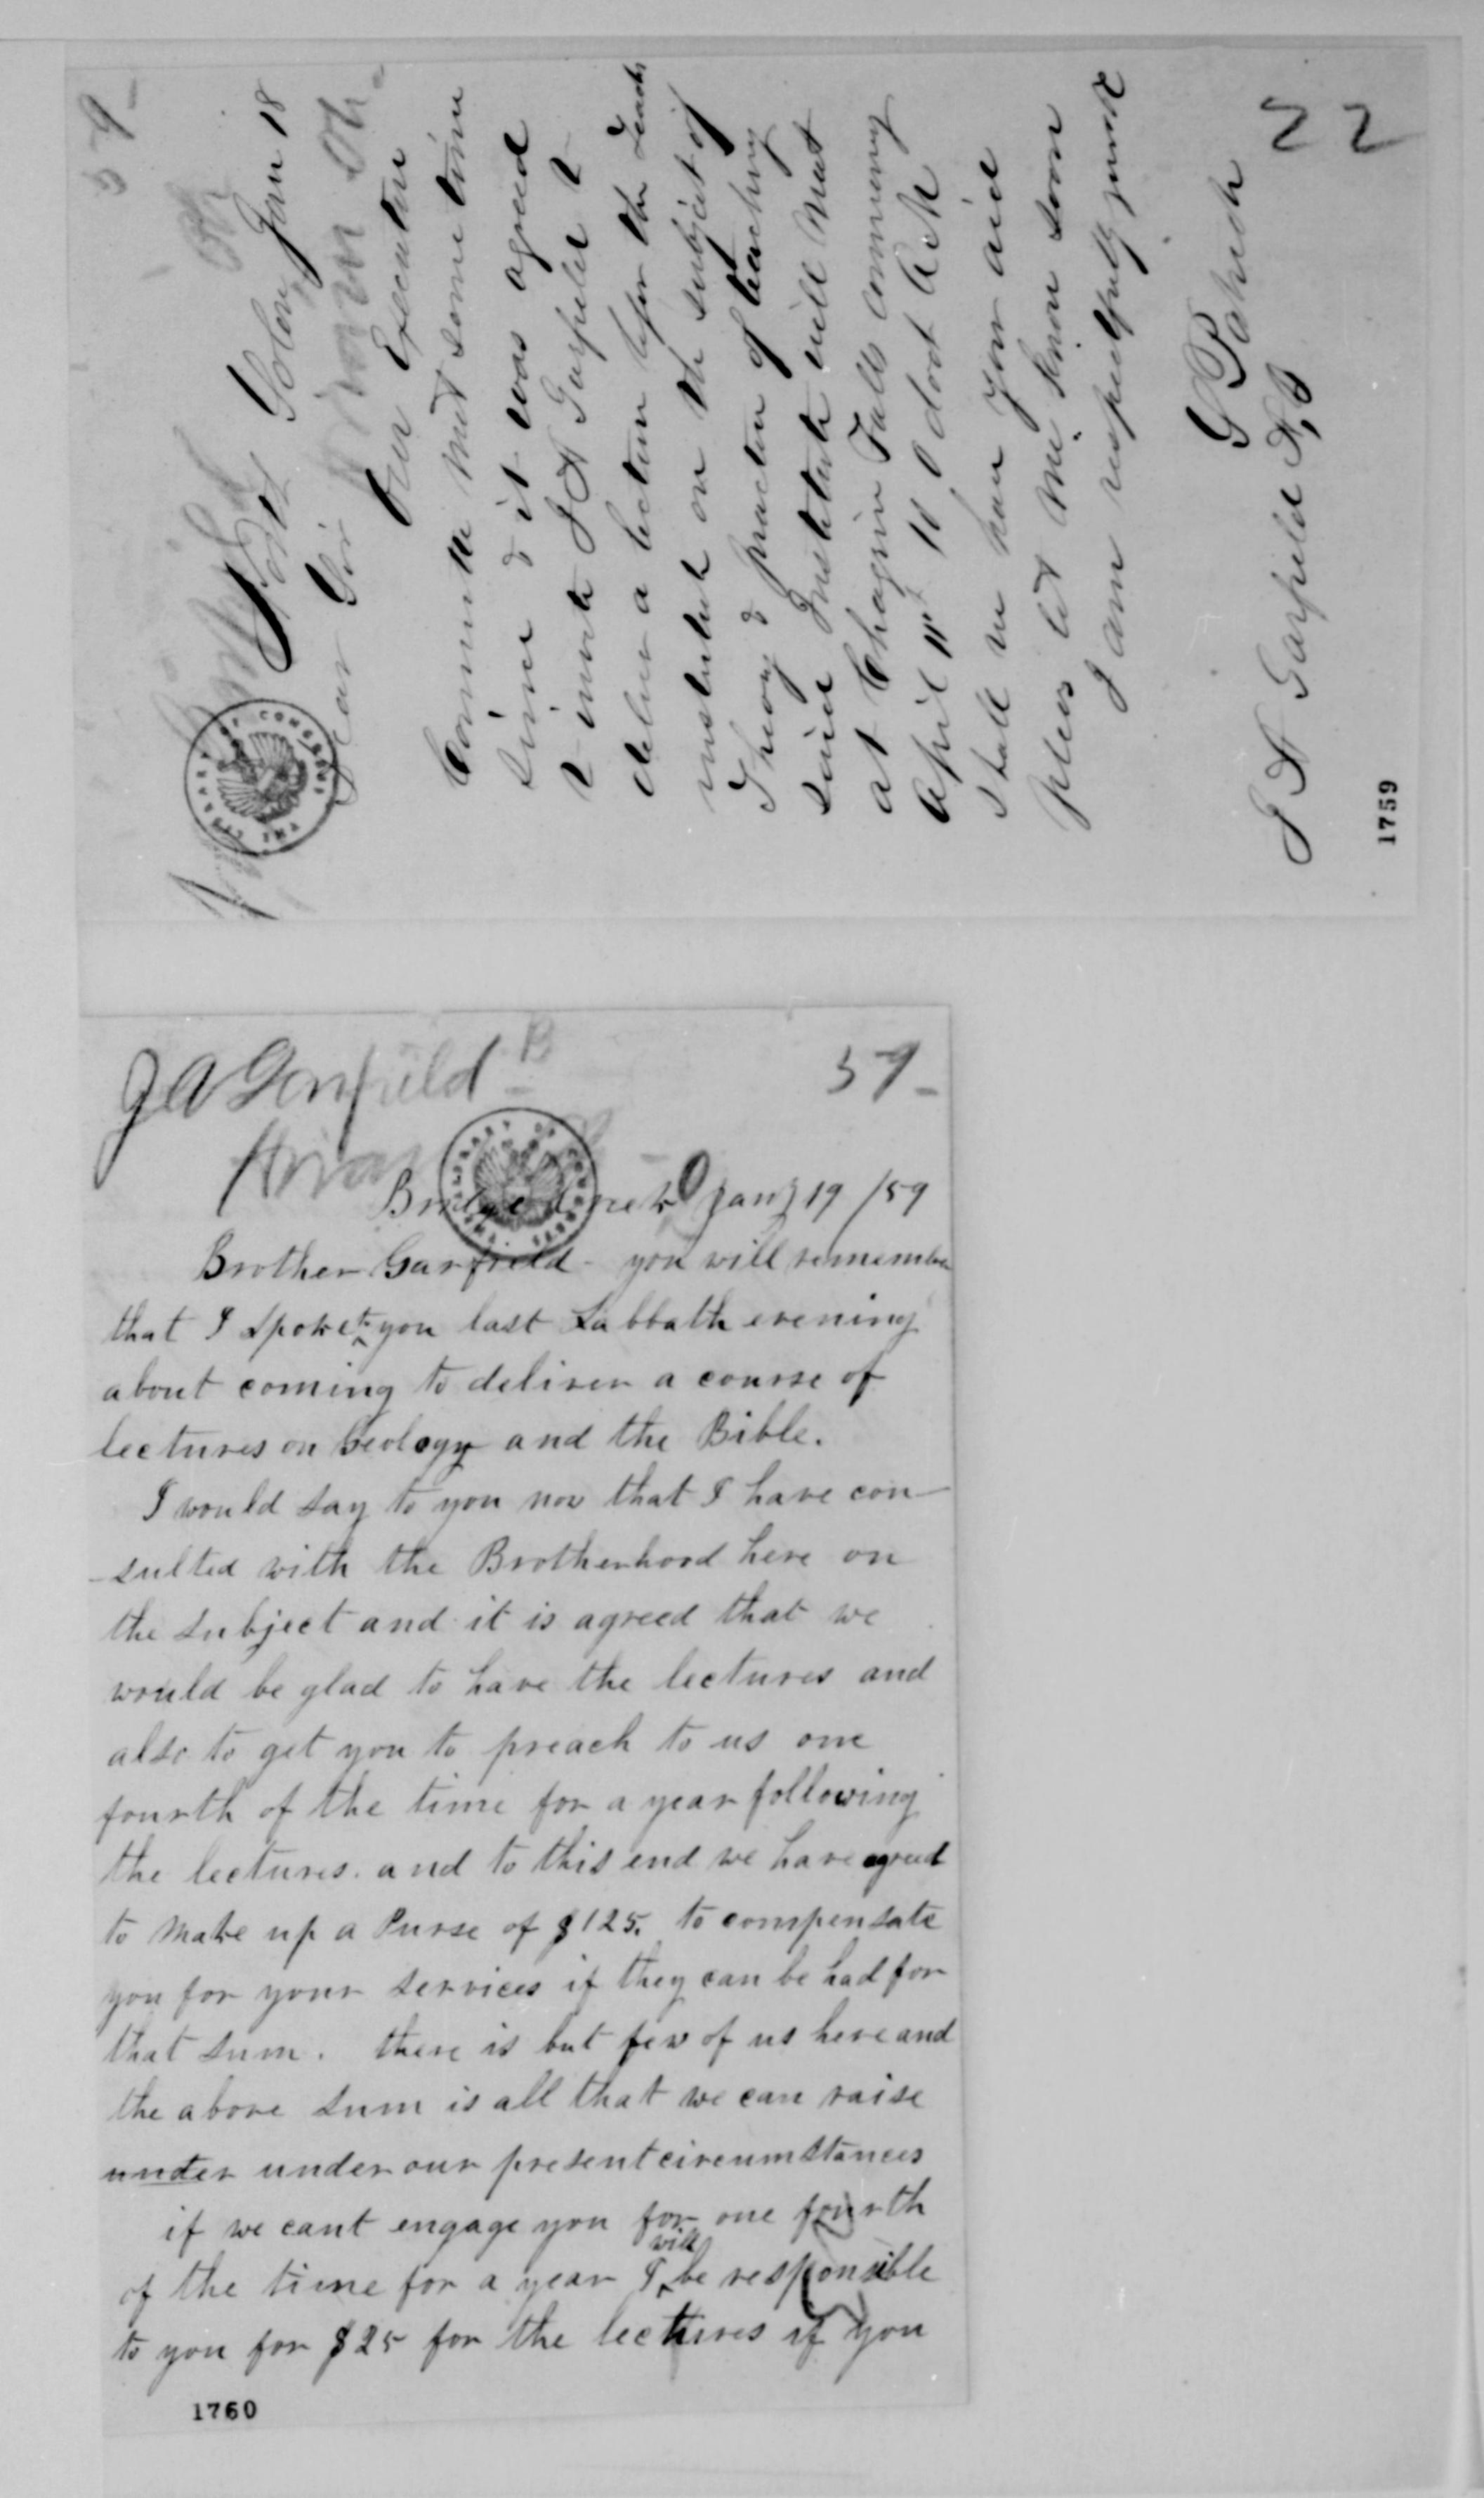 59-
West Solon, Jan 18
Dear Sir
Our Executive
Committe met some time
since & it was agreed
to invite J A Garfield to
deliver a lecture before the Teachers
institute on the subject of
Theory & practice of teaching
said Institute will meet
at Chagrin Falls commencing
April 11th 10 O clock A M
shall we have your aid
pleas let me know soon
I am respectfully yours
G Patrick
J A Garfield
22
1759
J A Garfield
59-
Hiram
Jany 19 /59
Brother Garfield - you will remember
that I spoke to you last Sabbath evening
about coming to deliver a course of
lectures on Geology and the Bible.
I would say to you now that I have con-
-sulted with the Brotherhood here on
the subject and it is agreed that we
would be glad to have the lectures and
also to get you to preach to us one
fourth of the time for a year following
the lectures. and to this end we have agreed
to make up a Purse of $125. to compensate
you for your services if they can be had for
that sum. there is but few of us here and
the above sum is all that we can raise
under under our present circumstances
if we cant engage you for one fourth
of the time for a year I will be responsible
to you for $25 for the lectures if you
1760